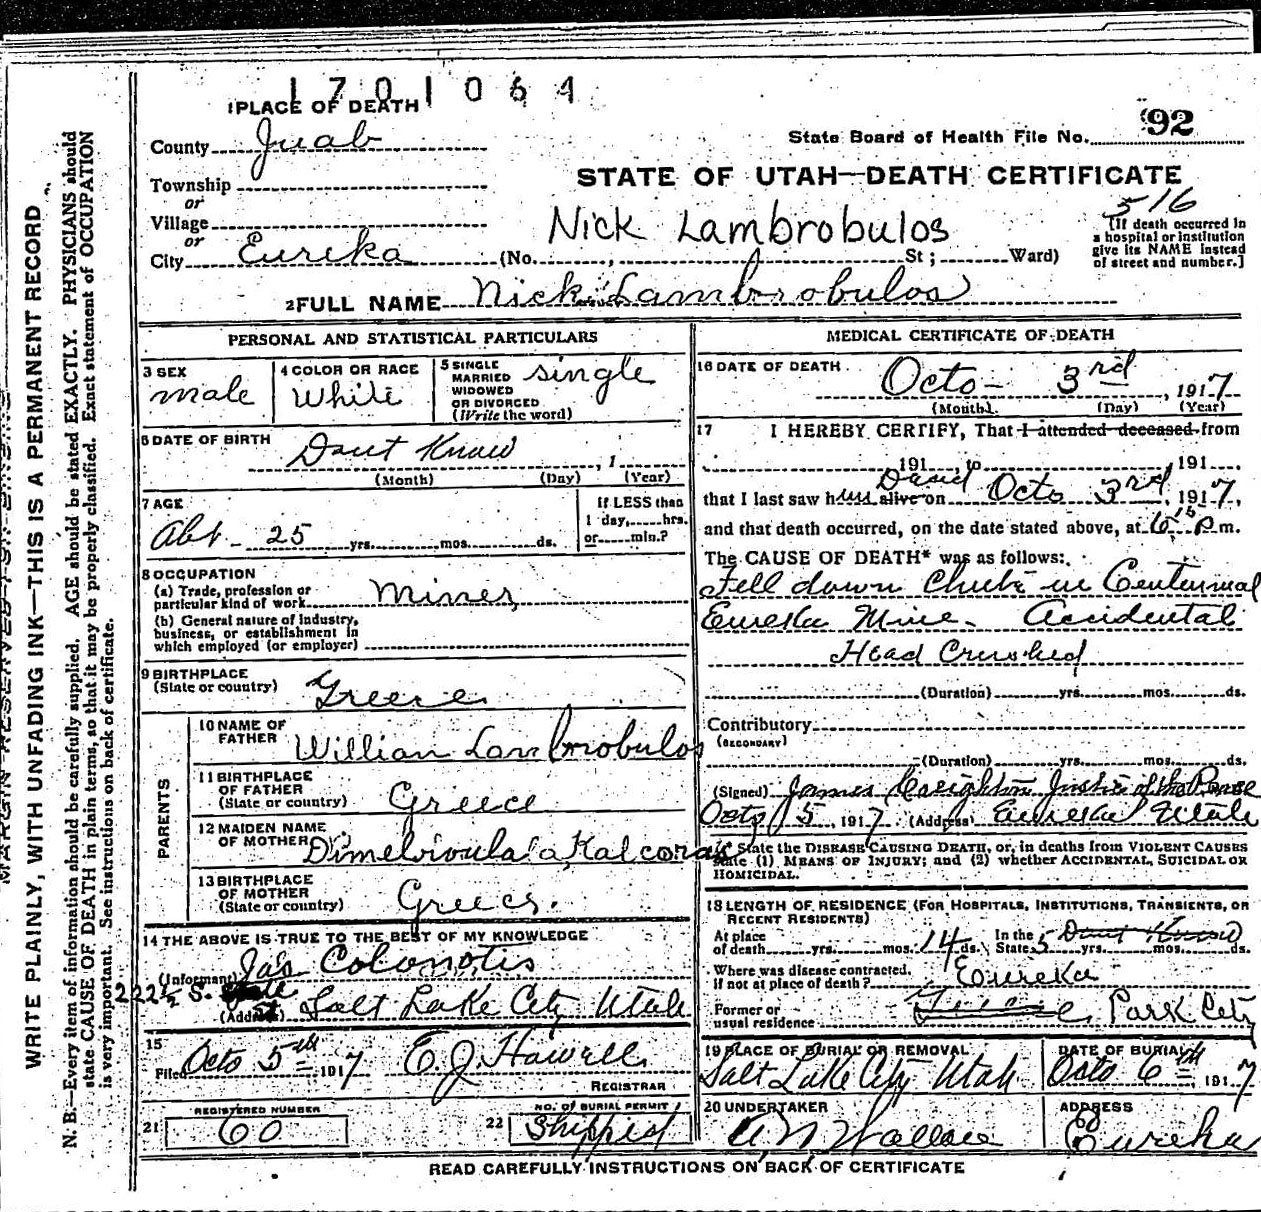 1701064
1 PLACE OF DEATH
County Juab
State Board of Health File No. 92
Township
or
STATE OF UTAH—DEATH CERTIFICATE
516
Village
or
Nick Lambrobulos
[If death occurred in
a hospital or institution
give its NAME instead
of street and number.]
City Eureka (No. , St ; Ward)
2 FULL NAME Nick Lambrobulos
PERSONAL AND STATISTICAL PARTICULARS
3 SEX
male
4 COLOR OR RACE
White
5 SINGLE
MARRIED
WIDOWED
OR DIVORCED
(Write the word)
single
6 DATE OF BIRTH
Dont Know , 1
(Month) (Day) (Year)
7 AGE
Abt - 25 yrs. mos. ds.
If LESS than
1 day, hrs.
or min.?
8 OCCUPATION
(a) Trade, profession or
particular kind of work Miner
(b) General nature of industry,
business, or establishment in
which employed (or employer)
9 BIRTHPLACE
(State or country) Greece
PARENTS
10 NAME OF
FATHER William Lambrobulos
11 BIRTHPLACE
OF FATHER
(State or country) Greece
12 MAIDEN NAME
OF MOTHER
13 BIRTHPLACE
OF MOTHER
(State or country) Greece.
14 THE ABOVE IS TRUE TO THE BEST OF MY KNOWLEDGE
(Informant) Jas Colonotis
222½ S.
(Address) Salt Lake City Utah
15
Filed Octo 5th 1917 E. J. Howell
REGISTRAR
21 REGISTERED NUMBER
60
22 NO. of BURIAL PERMIT
Shipped
MEDICAL CERTIFICATE OF DEATH
16 DATE OF DEATH
Octo - 3rd , 1917
(Month) (Day) (Year)
17 I HEREBY CERTIFY, That I attended deceased from
191 , to , 191
that I last saw him alive on Dead Octo 3rd, 1917,
and that death occurred, on the date stated above, at 6 15 p m.
The CAUSE OF DEATH* was as follows:
Fell down Chute in Centennial
Eureka Mine. Accidental
Head Crushed
(Duration) yrs. mos. ds.
Contributory
(SECONDARY)
(Duration) yrs. mos. ds.
(Signed) James Creighton Justice of the Peace
Octo 5, 1917 (Address) Eureka Utah
* State the DISEASE CAUSING DEATH, or, in deaths from VIOLENT CAUSES
state (1) MEANS OF INJURY; and (2) whether ACCIDENTAL, SUICIDAL OR
HOMICIDAL.
18 LENGTH OF RESIDENCE (FOR HOSPITALS, INSTITUTIONS, TRANSIENTS, OR
RECENT RESIDENTS)
At place
of death yrs. mos. 14 ds.
In the
State 5 Dont Know yrs. mos. ds.
Where was disease contracted,
if not at place of death? Eureka
Former or
usual residence Park City
19 PLACE OF BURIAL OR REMOVAL
Salt Lake City Utah
DATE OF BURIAL
Octo 6th, 1917
20 UNDERTAKER
A N Wallace
ADDRESS
Eureka
READ CAREFULLY INSTRUCTIONS ON BACK OF CERTIFICATE
MARGIN RESERVED FOR BINDING
WRITE PLAINLY, WITH UNFADING INK—THIS IS A PERMANENT RECORD
N. B.—Every item of information should be carefully supplied. AGE should be stated EXACTLY. PHYSICIANS should
state CAUSE OF DEATH in plain terms, so that it may be properly classified. Exact statement of OCCUPATION
is very important. See instructions on back of certificate.